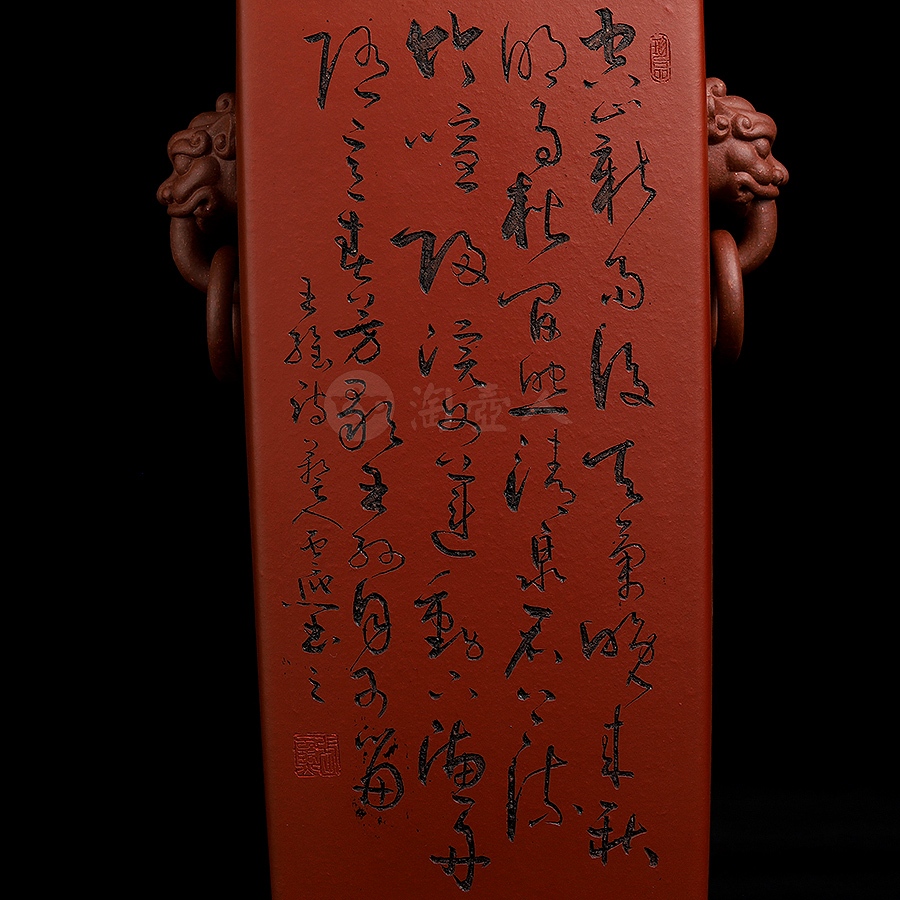 空山新雨後天氣晚來秋
明月松間照清泉石上流
竹喧歸浣女蓮動下漁舟
隨意春芳歇王孫自可留
王維詩
淘壺人